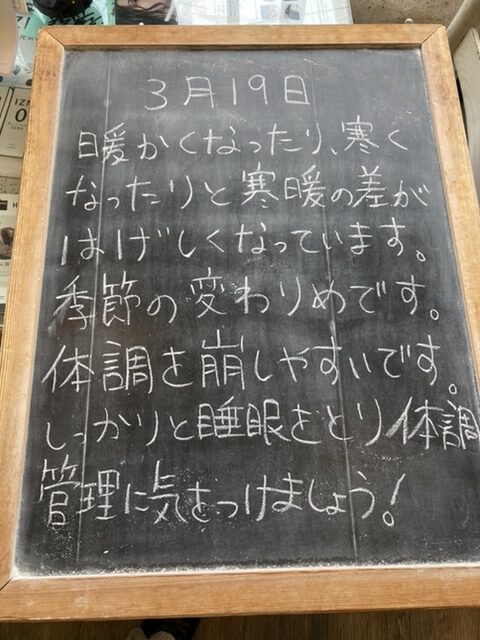 3月19日
暖かくなったり、寒く
なったりと寒暖の差が
はげしくなっています。
季節の変わりめです。
体調を崩しやすいです。
しっかりと睡眠をとり体調
管理に気をつけましょう!
IZM
ZERO